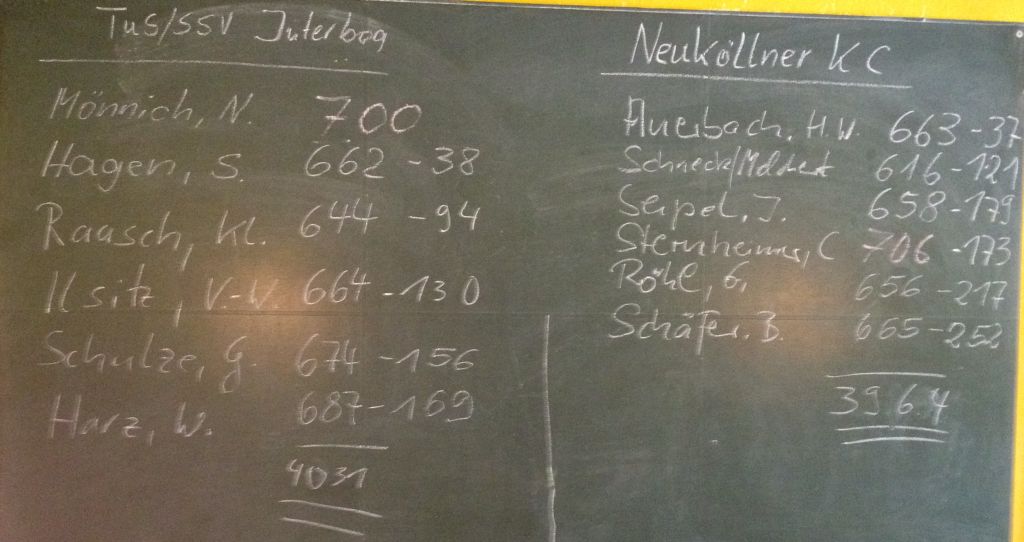 TuS/SSV Jüterbog
Mönnich, N. 700
Hagen, S. 662 -38
Raasch, Kl. 644 -94
Ilsitz, V-W 664 -130
Schulze, G. 674 -156
Harz, W. 687 -169
4031
Neuköllner KC
Auerbach, H.W. 663 -37
616 -121
Seipel, J. 658 -179
Sternheims, C 706 -173
Röhl, G. 656 -217
Schäfer, B. 665 -252
3964